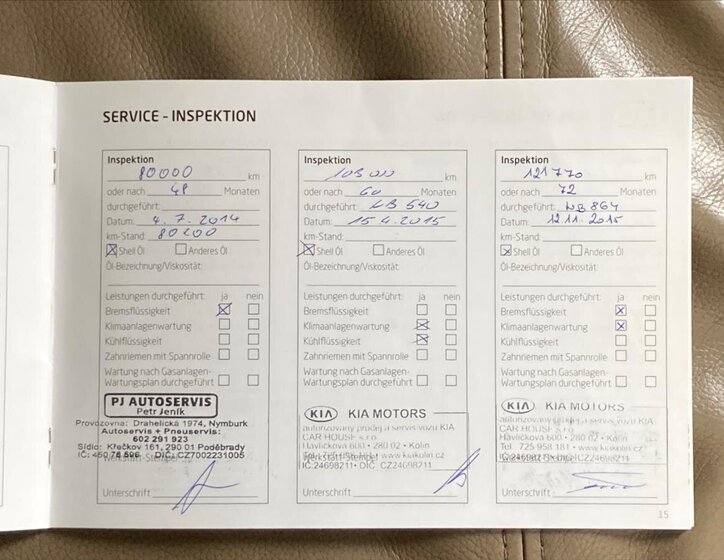 SERVICE - INSPEKTION
Inspektion
80000 km
oder nach 48 Monaten
durchgeführt:
Datum: 4.7.2014
km-Stand: 80200
Shell Öl Anderes Öl
Öl-Bezeichnung/Viskosität:
Leistungen durchgeführt: ja nein
Bremsflüssigkeit
Klimaanlagenwartung
Kühlflüssigkeit
Zahnriemen mit Spannrolle
Wartung nach Gasanlagen-
Wartungsplan durchgeführt
PJ AUTOSERVIS
Petr Jeník
Provozovna: Drahelická 1974, Nymburk
Autoservis + Pneuservis:
602 291 923
Sídlo: Křečkov 161, 290 01 Poděbrady
IČ: 450 76 596 DIČ: CZ7002231005
Werkstatt-Stempel
Unterschrift
Inspektion
km
oder nach 60 Monaten
durchgeführt: 540
Datum: 15.4.2015
km-Stand:
Shell Öl Anderes Öl
Öl-Bezeichnung/Viskosität:
Leistungen durchgeführt: ja nein
Bremsflüssigkeit
Klimaanlagenwartung
Kühlflüssigkeit
Zahnriemen mit Spannrolle
Wartung nach Gasanlagen-
Wartungsplan durchgeführt
KIA KIA MOTORS
autorizovaný prodej a servis vozů KIA
CAR HOUSE s.r.o.
Havlíčkova 600 • 280 02 • Kolín
Tel. 725 958 181 • www.kiakolin.cz
IČ 24698211 • DIČ CZ24698211
Werkstatt-Stempel
Unterschrift
Inspektion
121770 km
oder nach 72 Monaten
durchgeführt: 864
Datum: 12.11.2015
km-Stand:
Shell Öl Anderes Öl
Öl-Bezeichnung/Viskosität:
Leistungen durchgeführt: ja nein
Bremsflüssigkeit
Klimaanlagenwartung
Kühlflüssigkeit
Zahnriemen mit Spannrolle
Wartung nach Gasanlagen-
Wartungsplan durchgeführt
KIA KIA MOTORS
autorizovaný prodej a servis vozů KIA
CAR HOUSE s.r.o.
Havlíčkova 600 • 280 02 • Kolín
Tel. 725 958 181 • www.kiakolin.cz
IČ 24698211 • DIČ CZ24698211
Werkstatt-Stempel
Unterschrift
15